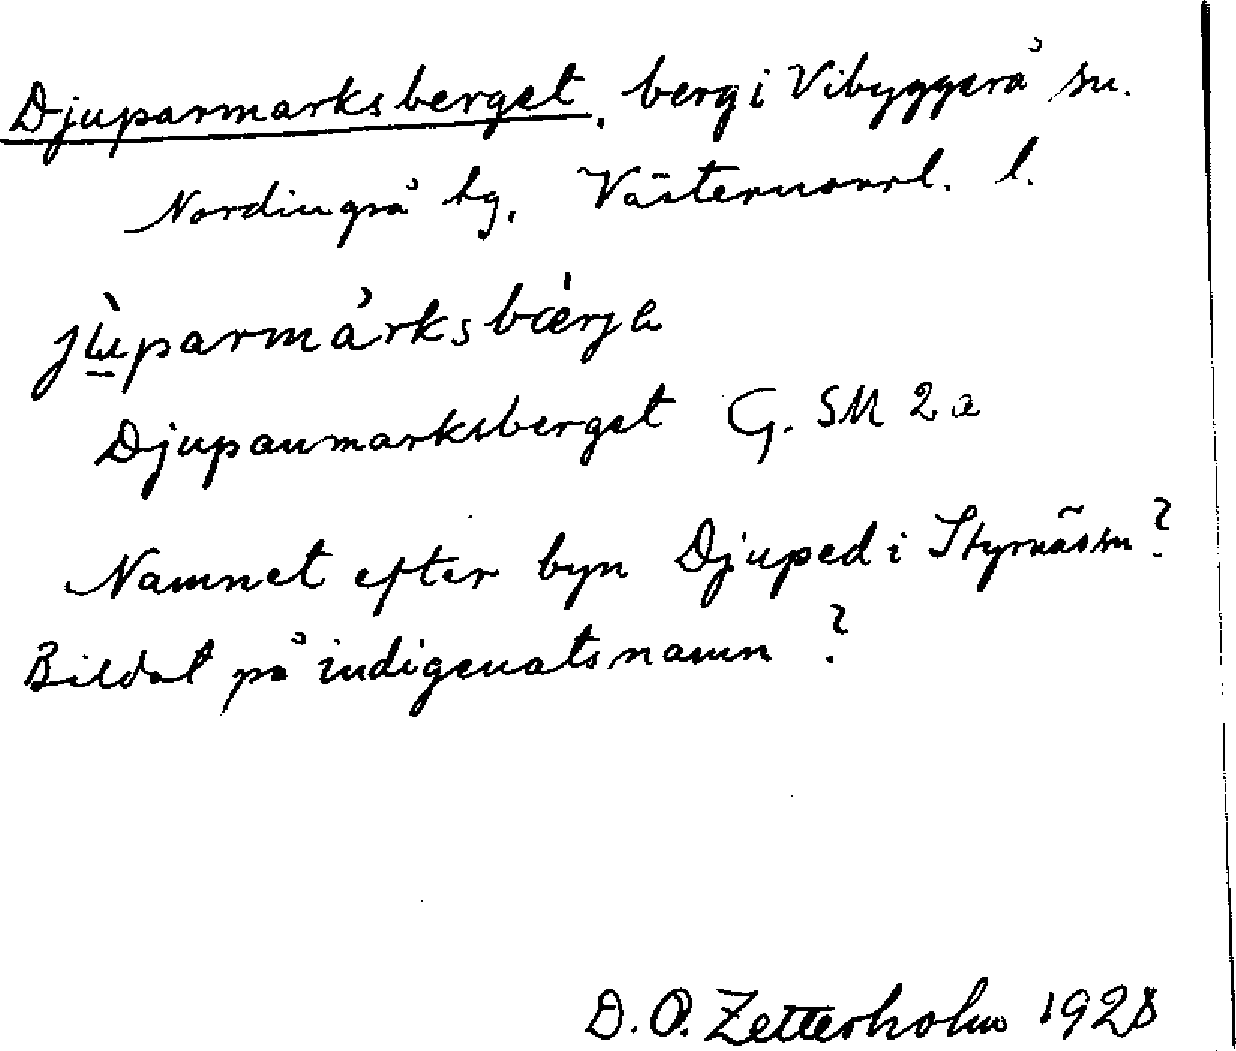 Djuparmarksberget, berg i Vibyggerå sn.
Nordingrå tg, Västernorrl. l.
jʉ̀parmàrksbærjə
Djupanmarksberget G. SM 2a
Namnet efter byn Djuped i Styrnäs sn?
Bildat på indigenatsnamn?
D. O. Zetterholm 1928